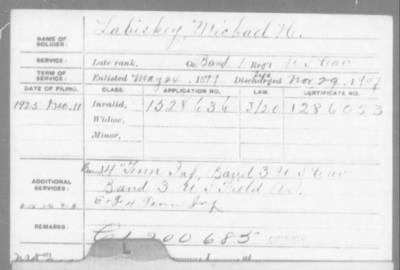 NAME OF SOLDIER: Labiskey, Michael H.
SERVICE: Late rank, Co. Band 1 Reg't U S Cav
TERM OF SERVICE: Enlisted May 24, 1899 Discharged Nov 29, 1907
DATE OF FILING. CLASS. APPLICATION NO. LAW. CERTIFICATE NO.
1923 Dec. 11 Invalid, 1528636 J/20 1286053
Widow,
Minor,
ADDITIONAL SERVICES: 4" Tenn Inf, Band 3 U S Cav
Band 3 U S Field Art.
Inf
REMARKS: C 1 200 685
L